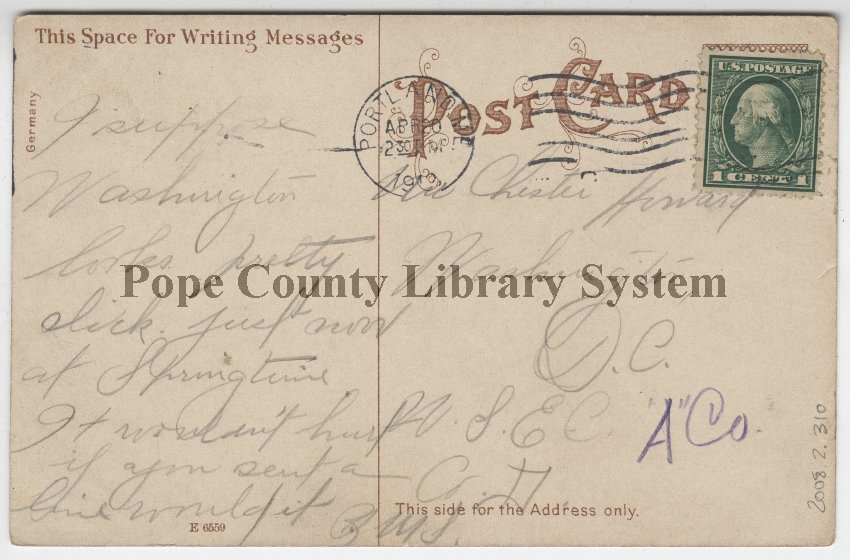 This Space For Writing Messages
POST CARD
Germany
PORTLAND
APR 20
2 30 PM
191
U.S. POSTAGE
1 CENT 1
I suppose
Washington
looks pretty
slick just now
at Springtime
It wouldn't hurt
if you sent a
line would it
Chester Howard
Washington,
D.C.
U. S. E C.
"A" Co.
Pope County Library System
This side for the Address only.
E 6559
2008 2. 310